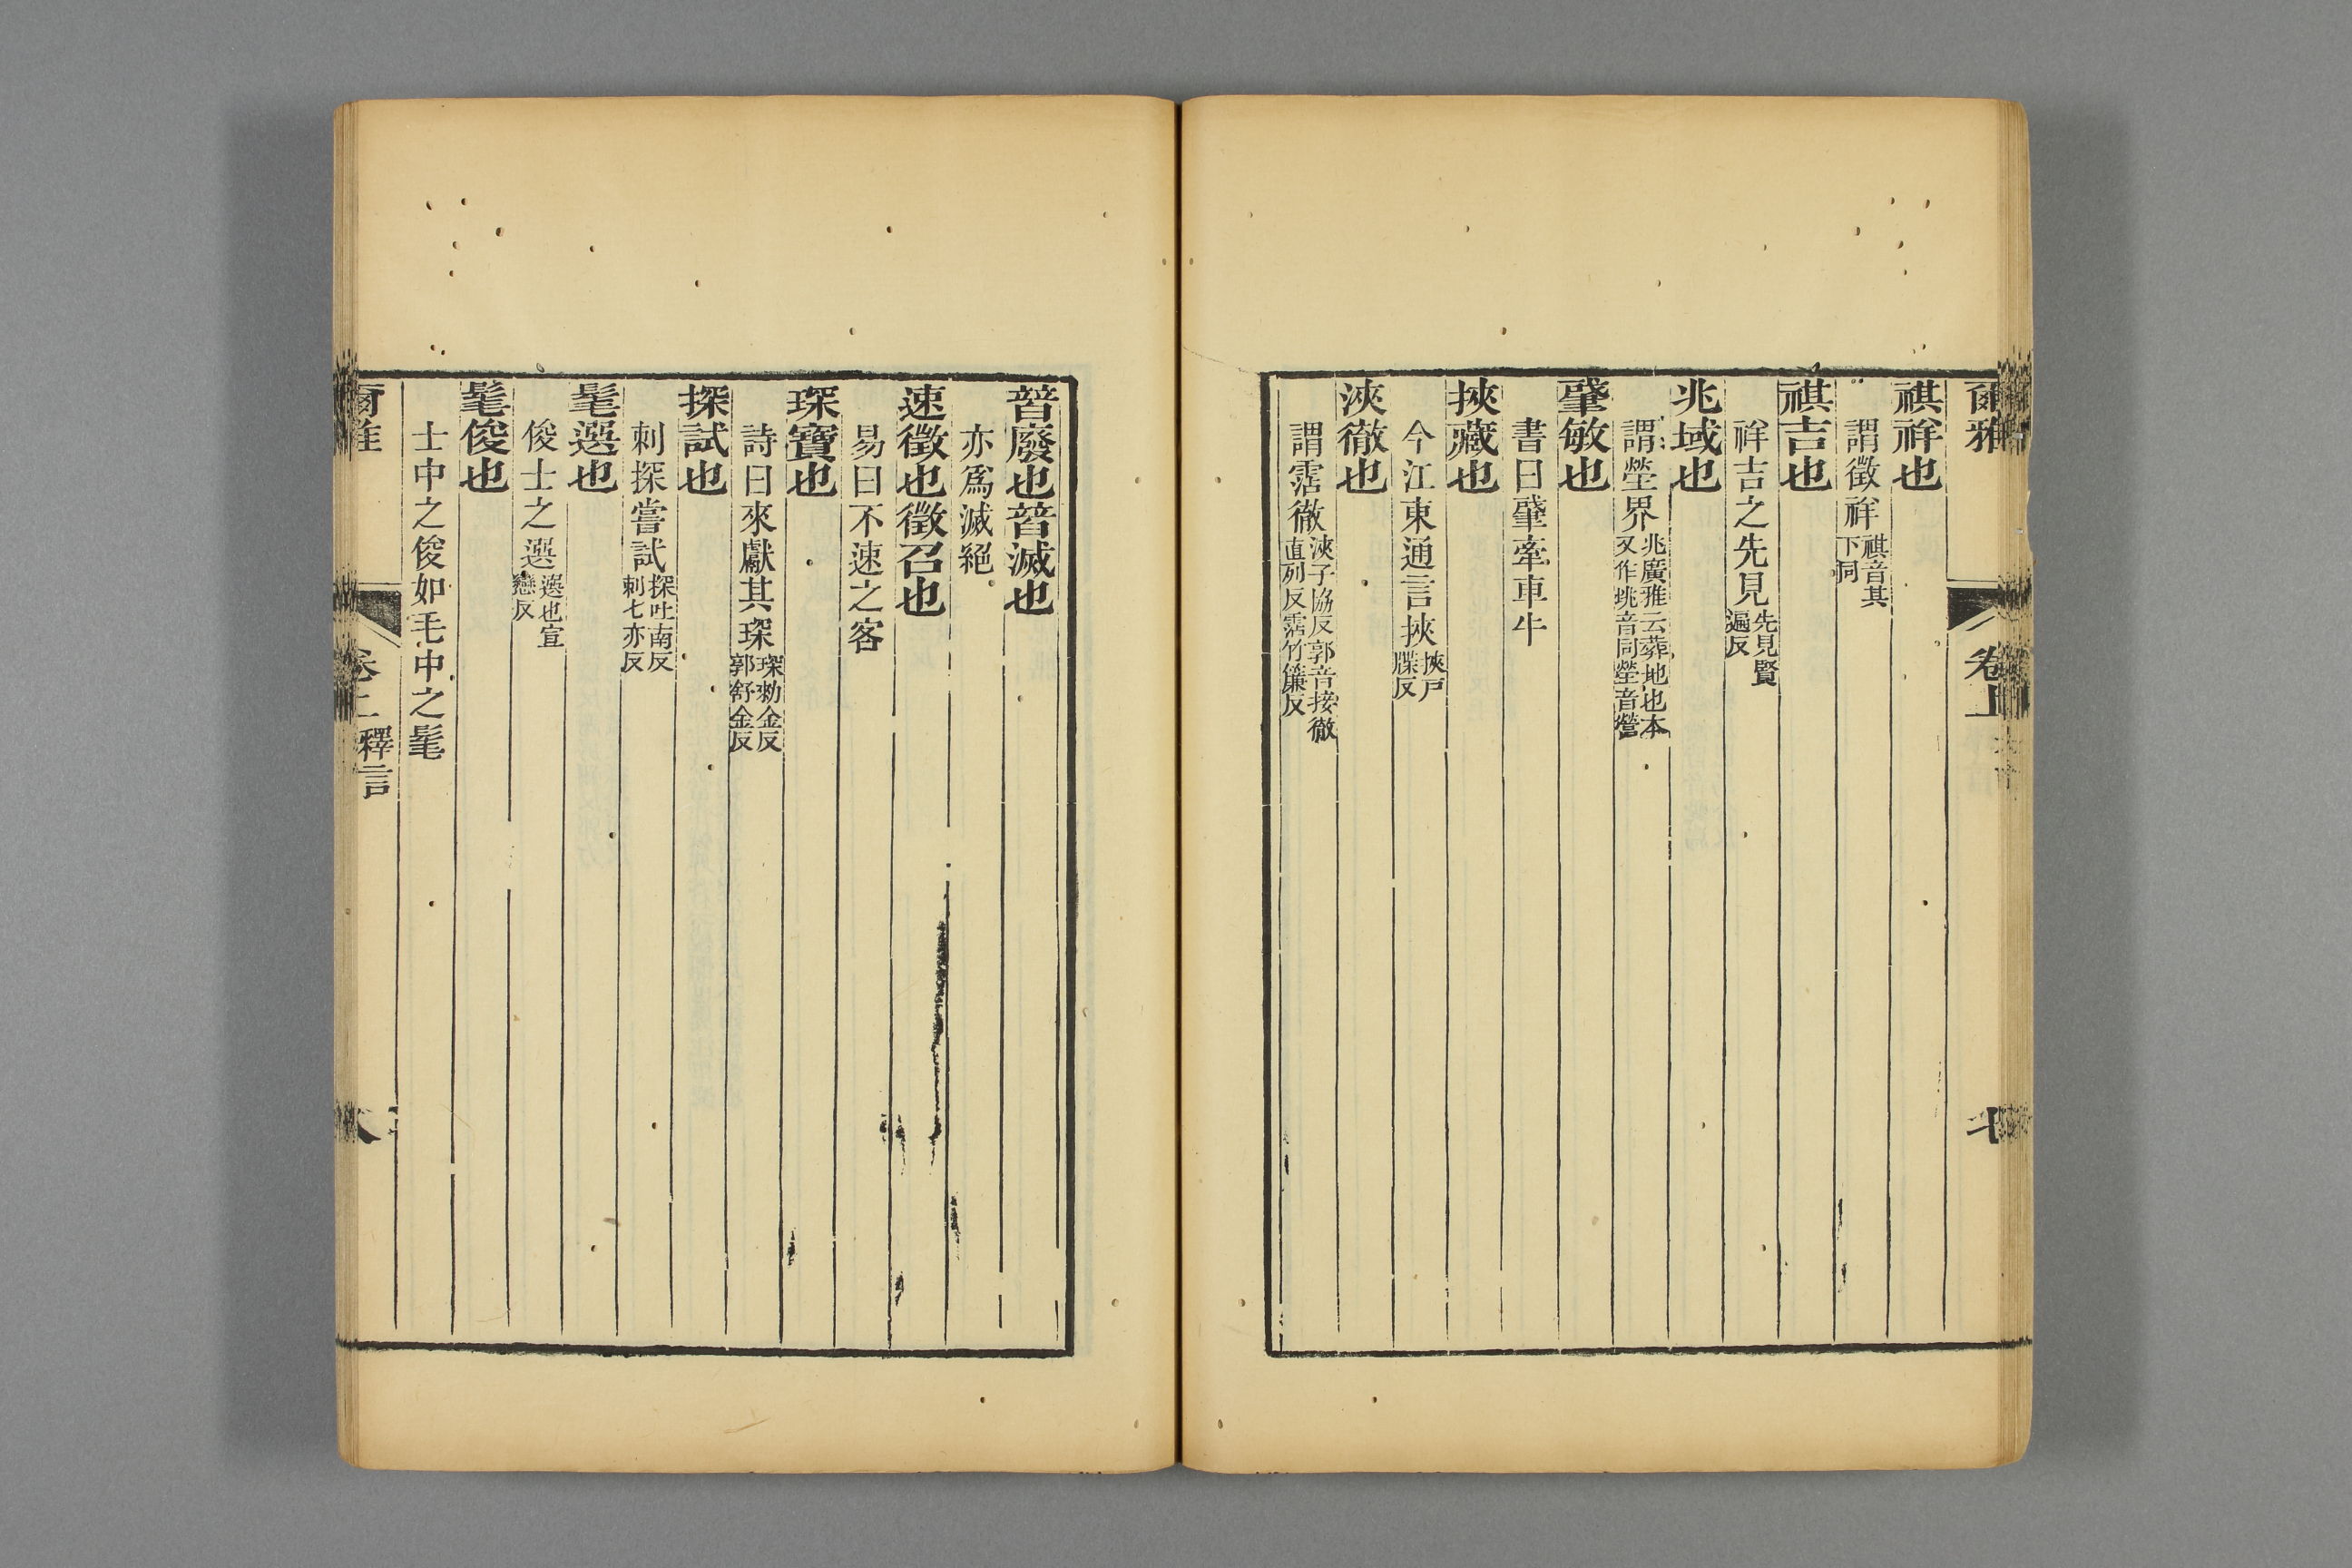 爾雅 卷上
祺祥也
謂徵祥祺音其下同
祺吉也
祥吉之先見先見賢遍反
兆域也
謂塋界兆廣雅云葬地也本又作垗音同塋音營
肇敏也
書曰肇牽車牛
挾藏也
今江東通言挾挾戸牒反
浹徹也
謂霑徹浹子協反郭音接徹直列反霑竹簾反
暜廢也暜滅也
亦爲滅絕
速徵也徵召也
易曰不速之客
琛寶也
詩曰來獻其琛琛勑金反郭舒金反
探試也
刺探嘗試探吐南反刺七亦反
髦選也
俊士之選選也宣戀反
髦俊也
士中之俊如毛中之髦
爾雅 卷上 釋言 八